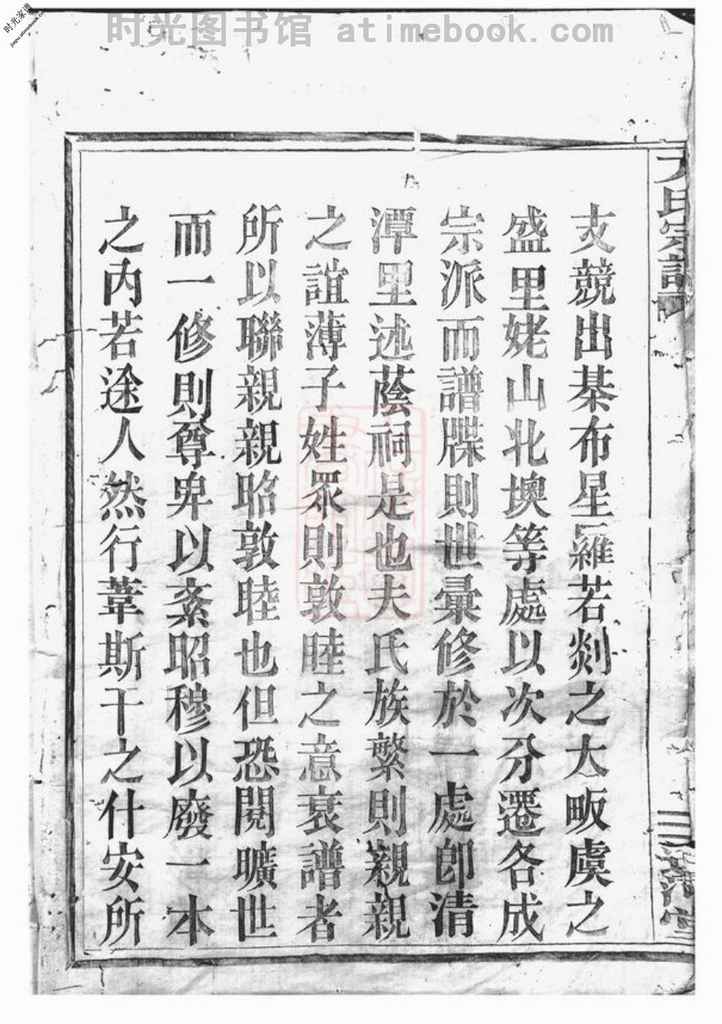 时光图书馆 atimebook.com
支競出棊布星羅若剡之大畈虞之
盛里姥山北墺等處以次分遷各成
宗派而譜牒則世彙修於一處卽清
潭里述蔭祠是也夫氏族繁則親親
之誼薄子姓眾則敦睦之意衰譜者
所以聯親親昭敦睦也但恐閱曠世
而一修則尊卑以紊昭穆以廢一本
之內若途人然行葦斯干之什安所